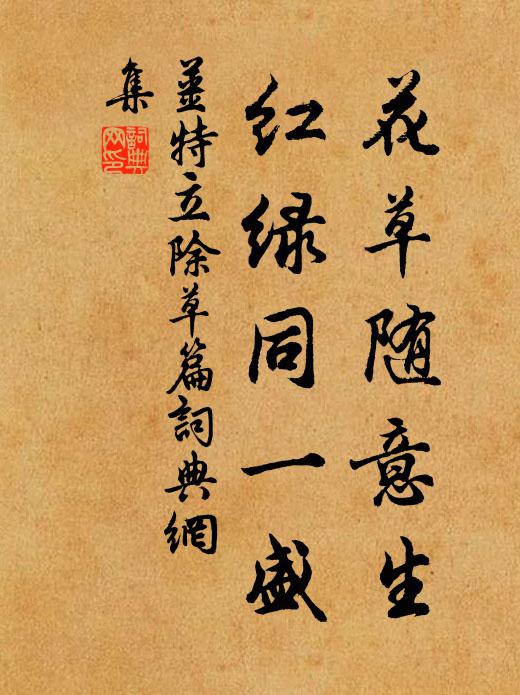 花草随意生
红绿同一盛
姜特立除草篇詞典網
集
詞典
网印